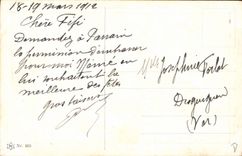 18-19 mars 1912
Chère Fifi
Demandez à Parrain
la permission d'embrasser
pour moi Mémé en
lui souhaitant la
meilleure des fêtes
gros baisers
Mlle Joséphine
Draguignan
(Var)